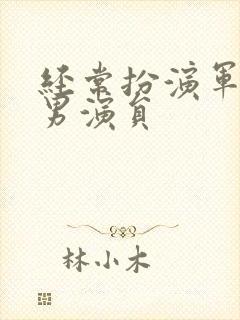 经常扮演軍
男演員
林小木